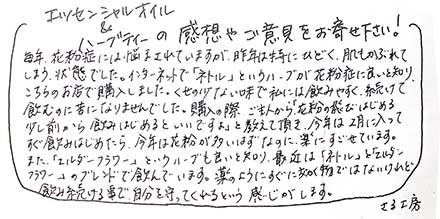 エッセンシャルオイル
&
ハーブティーの感想やご意見をお寄せ下さい!
毎年、花粉症には悩まされていますが、昨年は特にひどく、肌もかぶれて
しまう状態でした。インターネットで「ネトル」というハーブが花粉症に良いと知り、
こちらのお店で購入しました。くせの少ない味で私には飲みやすく、続けて
飲むのに苦になりませんでした。購入の際、ご主人から「花粉の飛びはじめる
少し前から飲みはじめるといいですよ」と教えて頂き、今年は2月に入って
すぐ飲みはじめたら、今年は花粉が多いはずなのに、楽にすごせています。
また、「エルダーフラワー」というハーブも良いと知り、最近は「ネトル」と「エルダー
フラワー」のブレンドで飲んでいます。薬のようにすぐに効く物ではないけれど
飲み続ける事で自分を守ってくれるという感じがします。
工房